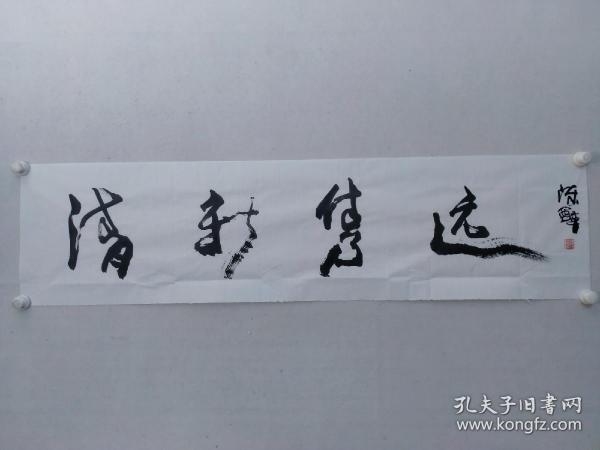 清新隽远
陈醉
孔夫子旧書网
www.kongfz.com